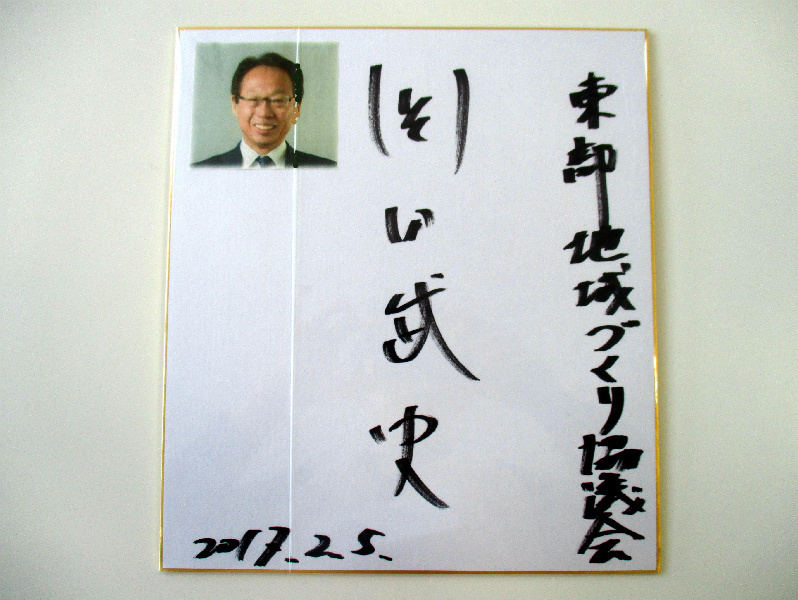 東部地域づくり協議会
関口武史
2017.2.5.